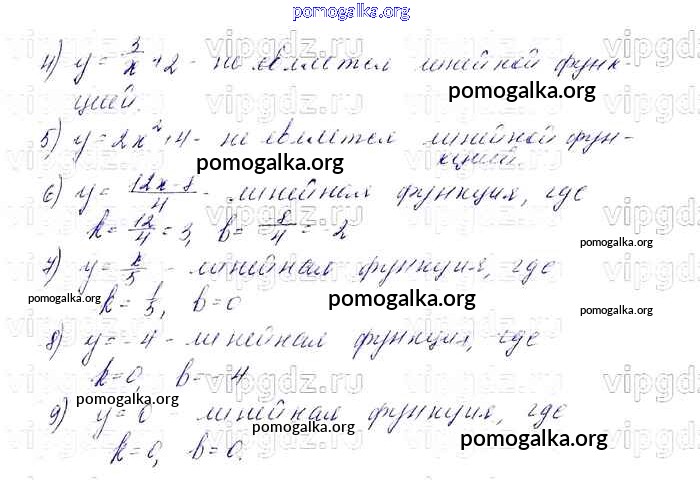 pomogalka.org
4) y = 3/x + 2 - не является линейной функ-
цией.
pomogalka.org
5) y = 2x² + 4 - не является линейной фун-
кцией.
pomogalka.org
6) y = (12x-8)/4 - линейная функция, где
k = 12/4 = 3, b = -8/4 = -2
pomogalka.org
7) y = x/5 - линейная функция, где
pomogalka.org pomogalka.org
k = 1/5, b = 0
pomogalka.org
8) y = -4 - линейная функция, где
k = 0, b = -4
9) y = 0 - линейная функция, где
pomogalka.org pomogalka.org
k = 0, b = 0.
vipgdz.ru